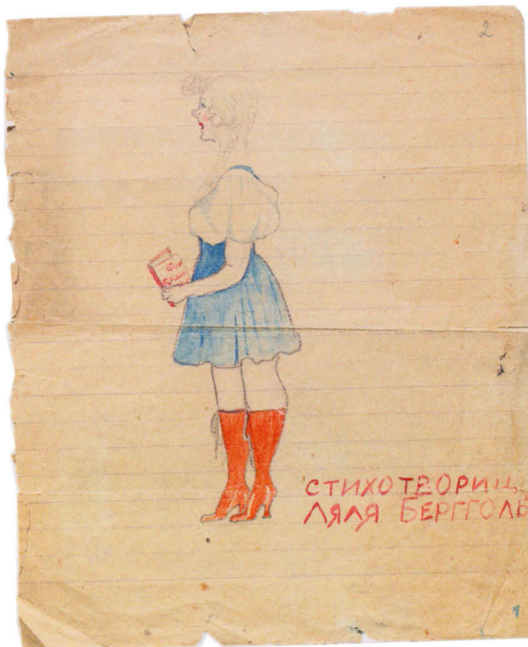 2
СТИХОТВОРИЦ
ЛЯЛЯ БЕРГГОЛЬ